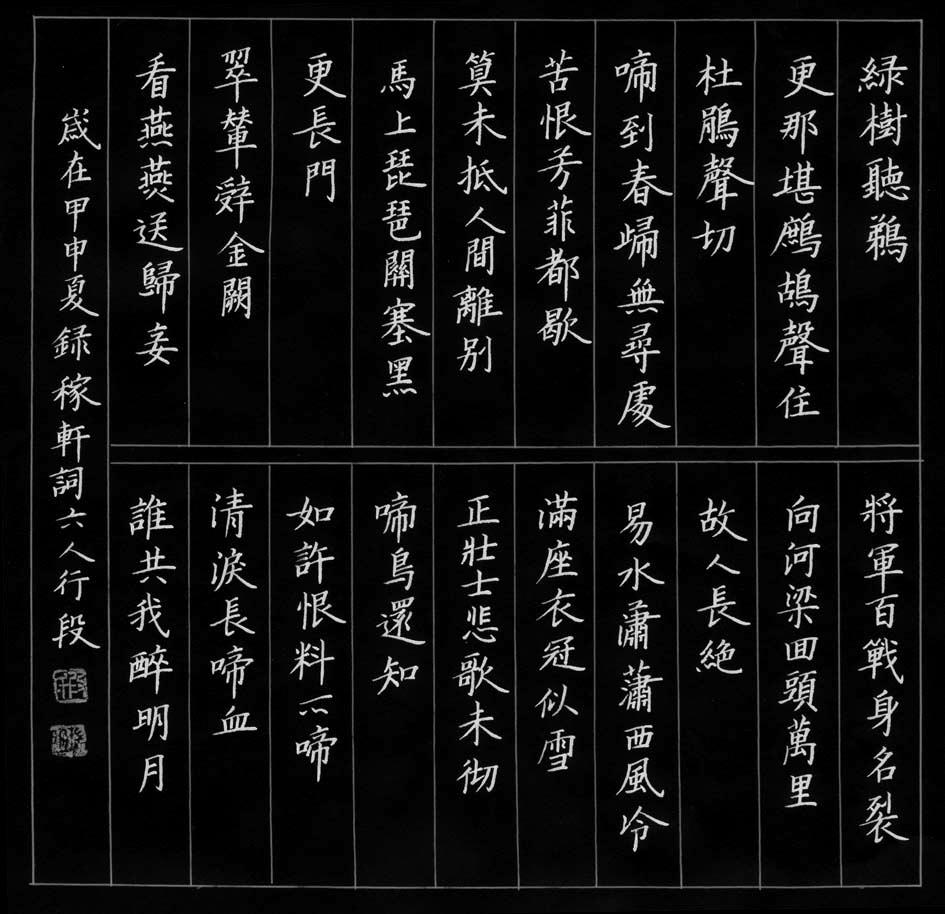 綠樹聽鵜
更那堪鷓鴣聲住
杜鵑聲切
啼到春歸無尋處
苦恨芳菲都歇
算未抵人間離别
馬上琵琶關塞黑
更長門
翠輦辭金闕
看燕燕送歸妾
將軍百戰身名裂
向河梁回頭萬里
故人長絶
易水瀟蕭西風冷
滿座衣冠似雪
正壯士悲歌未彻
啼鳥還知
如許恨料不啼
清淚長啼血
誰共我醉明月
嵗在甲申夏録稼軒詞六人行段